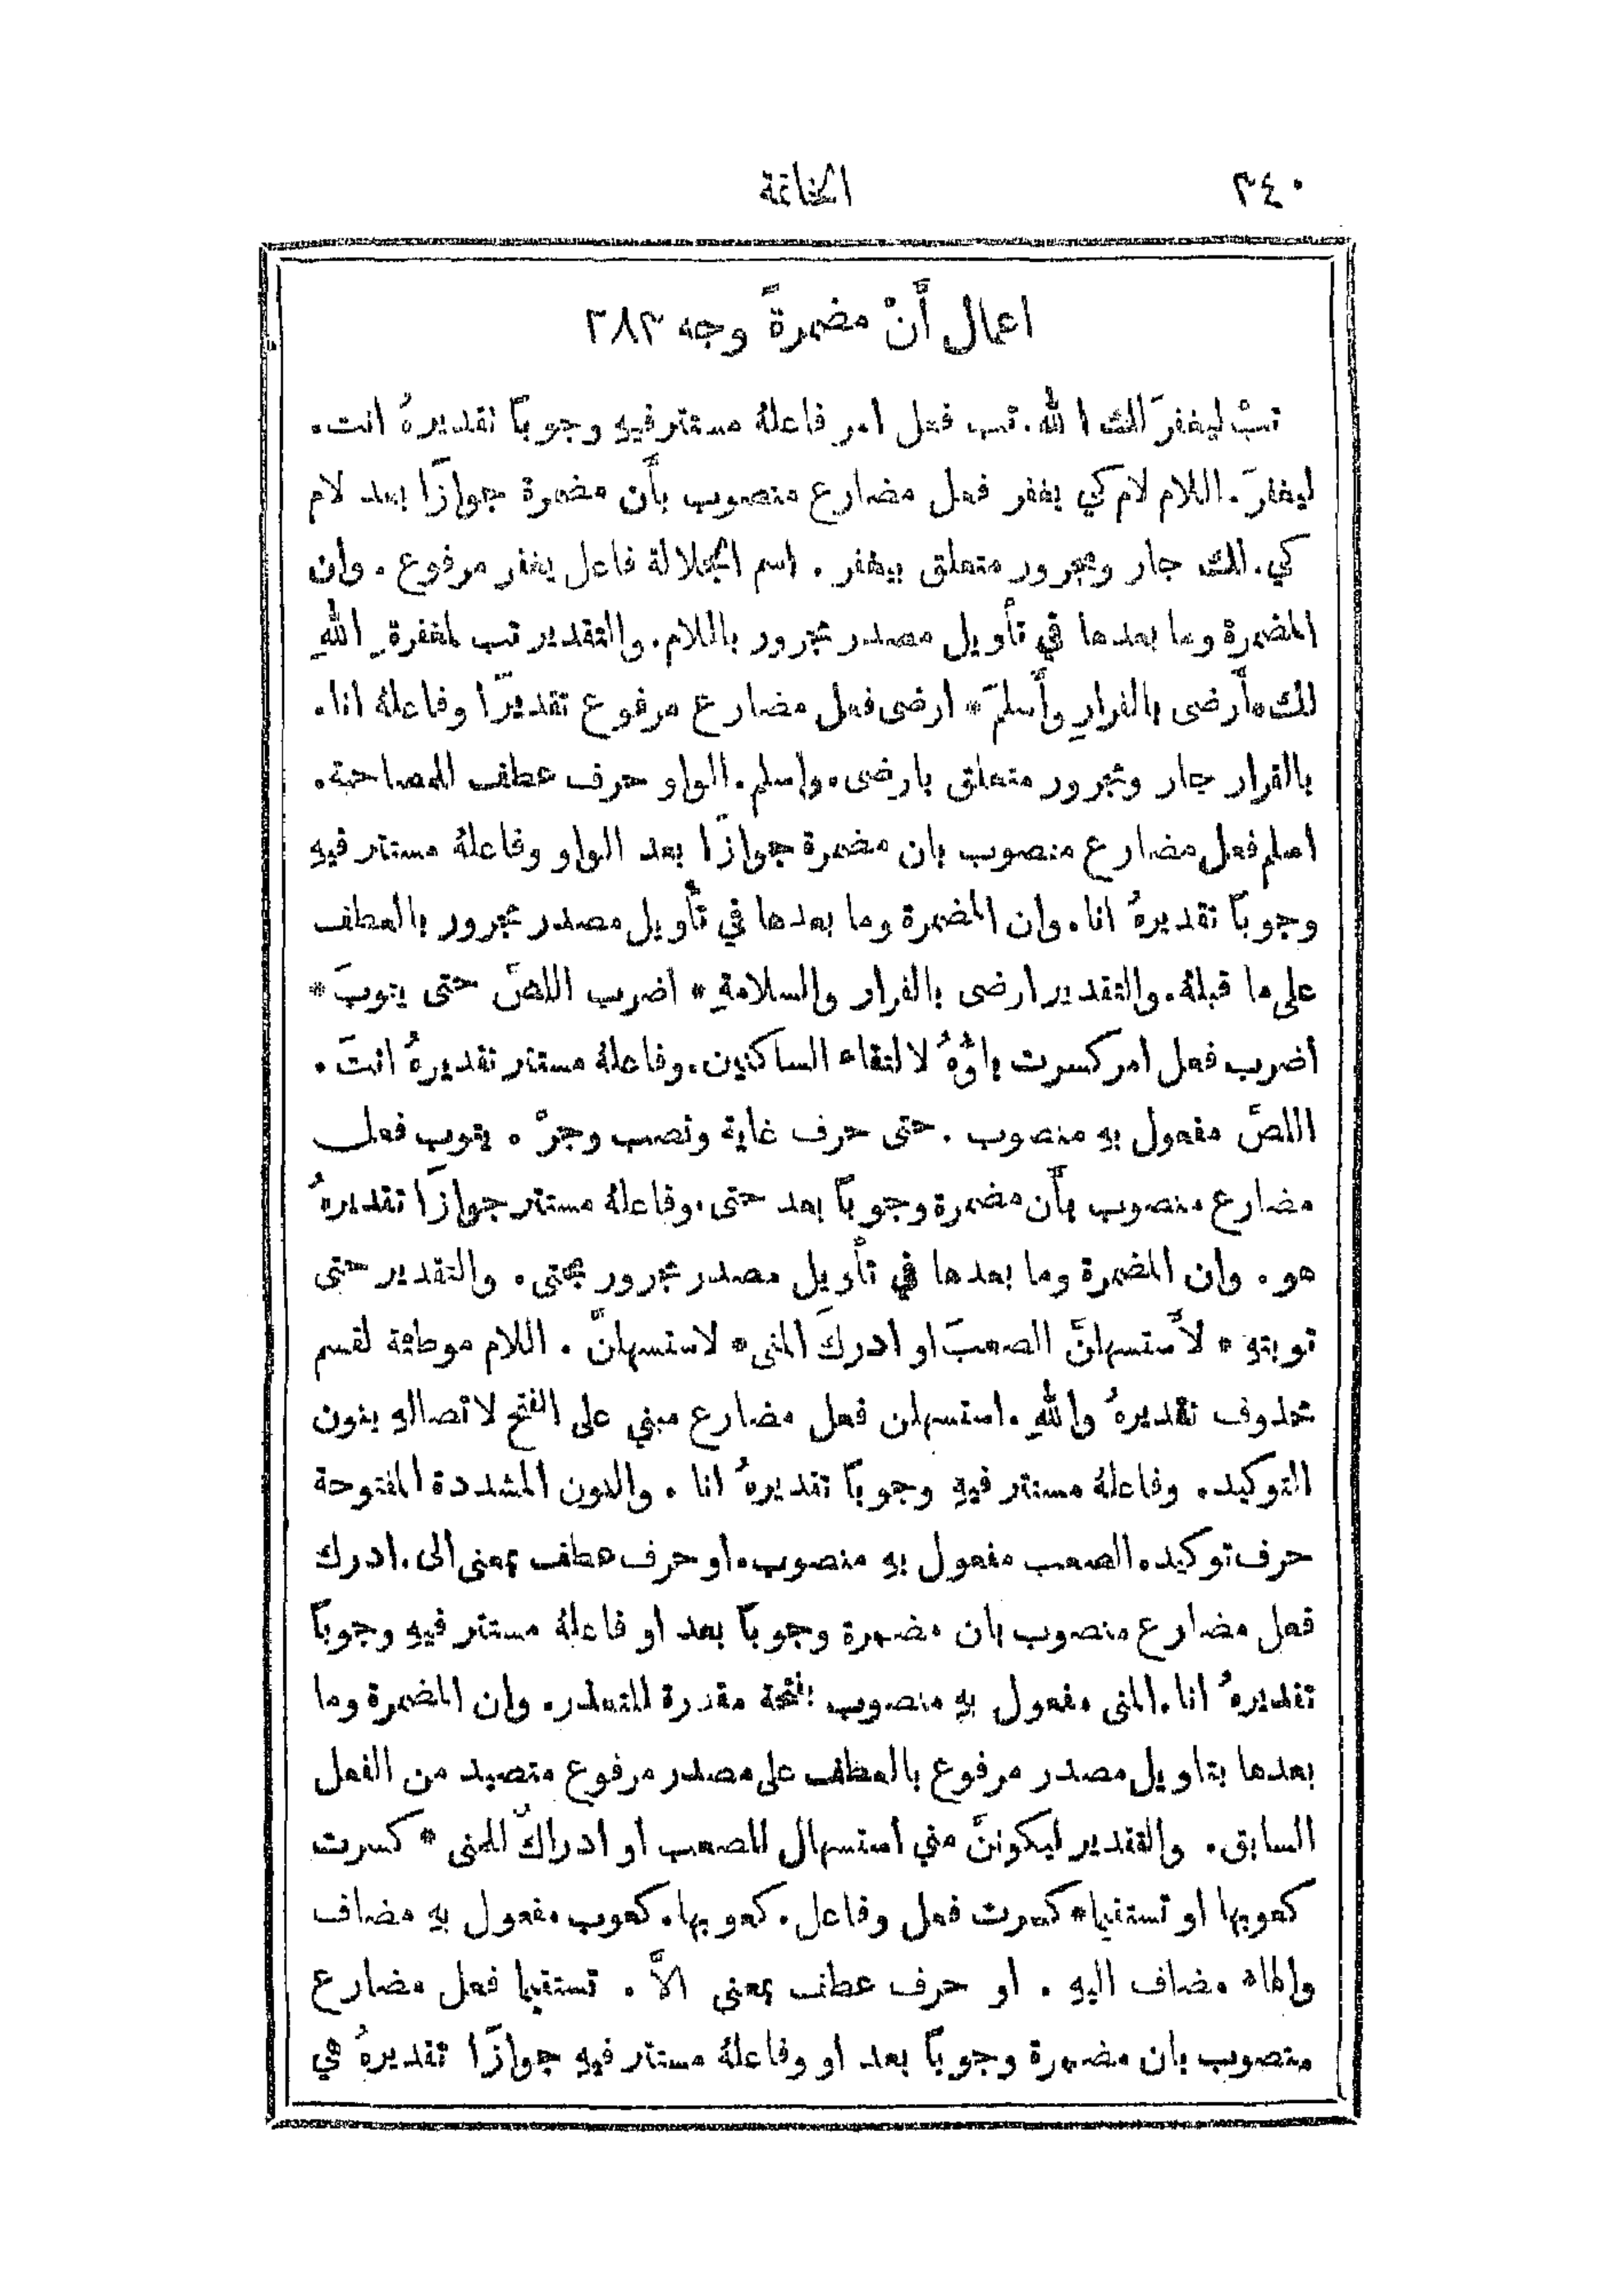 ٣٤٠
الخاتمة
اعمال أَنْ مضمرةً وجه ٢٨٣
تبْ ليغفرَ لك الله. تب فعل امر فاعلهُ مستتر فيهِ وجوبًا تقديرهُ انت.
ليغفرَ. اللام لام كي يغفر فعل مضارع منصوب بأَن مضمرة جوازًا بعد لام
كي. لك جار ومجرور متعلق بيغفر. اسم الجلالة فاعل يغفر مرفوع. وان
المضمرة وما بعدها في تأويل مصدر مجرور باللام. والتقدير تب لمغفرةِ اللهِ
لك * أَرضى بالفرارِ وأَسلمَ * ارضى فعل مضارع مرفوع تقديرًا وفاعلهُ انا.
بالفرار جار ومجرور متعلق بارضى. واسلم. الواو حرف عطف للمصاحبة.
اسلم فعل مضارع منصوب بان مضمرة جوازًا بعد الواو وفاعلهُ مستتر فيهِ
وجوبًا تقديرهُ انا. وان المضمرة وما بعدها في تأويل مصدر مجرور بالعطف
على ما قبلهُ. والتقدير ارضى بالفرار والسلامةِ * اضرب اللصَّ حتى يتوبَ *
اضرب فعل امر كسرت باؤُهُ لالتقاء الساكنين. وفاعلهُ مستتر تقديرهُ انتَ.
اللصَّ مفعول بهِ منصوب. حتى حرف غاية ونصب وجرّ. يتوب فعل
مضارع منصوب بأَن مضمرة وجوبًا بعد حتى. وفاعلهُ مستتر جوازًا تقديرهُ
هو. وان المضمرة وما بعدها في تأويل مصدر مجرور بحتى. والتقدير حتى
توبتهِ * لأَستسهلنَّ الصعبَ او ادركَ المنى * لاستسهلنَّ. اللام موطئة لقسم
محذوف تقديرهُ واللهِ. استسهلن فعل مضارع مبني على الفتح لاتصالهِ بنون
التوكيد. وفاعلهُ مستتر فيهِ وجوبًا تقديرهُ انا. والنون المشددة المفتوحة
حرف توكيد. الصعب مفعول بهِ منصوب. او حرف عطف بمعنى الى. ادرك
فعل مضارع منصوب بان مضمرة وجوبًا بعد او فاعلهُ مستتر فيهِ وجوبًا
تقديرهُ انا. المنى مفعول بهِ منصوب بفتحة مقدرة للتعذر. وان المضمرة وما
بعدها بتاويل مصدر مرفوع بالعطف على مصدر مرفوع متصيد من الفعل
السابق. والتقدير ليكوننَّ مني استسهال للصعب او ادراكٌ للمنى * كسرت
كعوبها او تستقيما * كسرت فعل وفاعل. كعوبها. كعوب مفعول بهِ مضاف
والهاء مضاف اليهِ. او حرف عطف بمعنى الاَّ. تستقيما فعل مضارع
منصوب بان مضمرة وجوبًا بعد او وفاعلهُ مستتر فيهِ جوازًا تقديرهُ هي